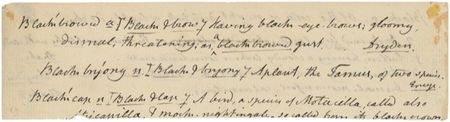 Blackbrowed a [Black & brow] having black eye-brows; gloomy,
dismal, threatening; as, a blackbrowed gust. Dryden.
Black bryony n [Black & bryony] A plant, the Tamus, of two species.
Encyc.
Black'cap n [Black & cap] A bird, a species of Motacilla, called also
& mock-nightingale, so called from its black crown